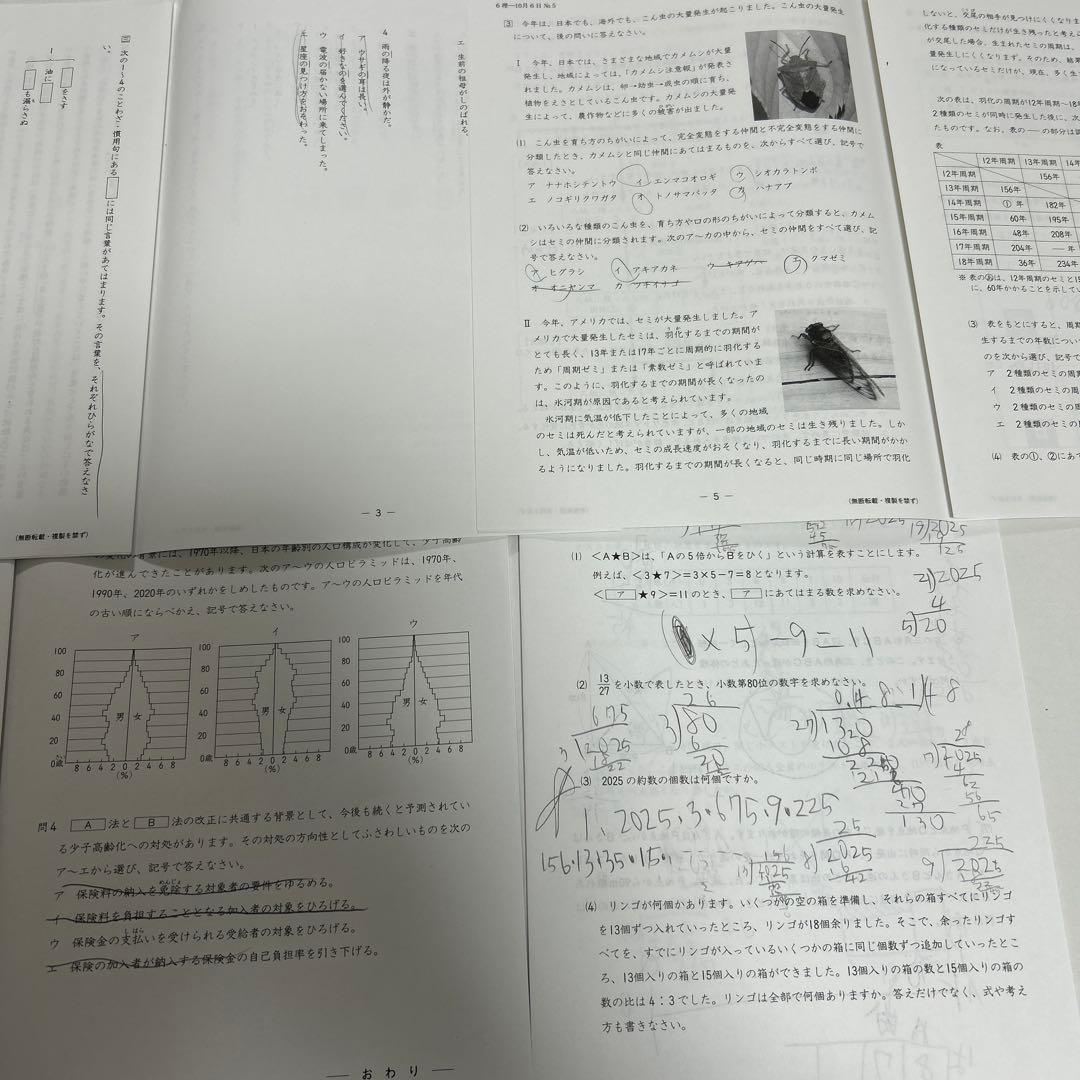 三 次の1～4のことわざ・慣用句にある□には同じ言葉があてはまります。その言葉を、それぞれひらがなで答えなさ
い。
1
□をさす
油に□
□も漏らさぬ
(無断転載・複製を禁ず)
エ 生前の祖母がしのばれる。
4 雨の降る夜は外が静かだ。
ア ウサギの耳は長い。
イ 好きなのを選んでください。
ウ 電波の届かない場所に来てしまった。
エ 星座の見つけ方をおそわった。
― 3 ―
6理―10月6日 №5
3 今年は、日本でも、海外でも、こん虫の大量発生が起こりました。こん虫の大量発生
について、後の問いに答えなさい。
Ⅰ 今年、日本では、さまざまな地域でカメムシが大量
発生し、地域によっては、「カメムシ注意報」が発表さ
れました。カメムシは、卵→幼虫→成虫の順に育ち、
植物をえさとしているこん虫です。カメムシの大量発
生によって、農作物などに多くの被害が出ました。
(1) こん虫を育ち方のちがいによって、完全変態をする仲間と不完全変態をする仲間に
分類したとき、カメムシと同じ仲間にあてはまるものを、次からすべて選び、記号で
答えなさい。
ア ナナホシテントウ イ エンマコオロギ ウ シオカラトンボ
エ ノコギリクワガタ オ トノサマバッタ カ ハナアブ
(2) いろいろな種類のこん虫を、育ち方や口の形のちがいによって分類すると、カメム
シはセミの仲間に分類されます。次のア～カの中から、セミの仲間をすべて選び、記
号で答えなさい。
ア ヒグラシ イ アキアカネ ウ キアゲハ エ クマゼミ
オ オニヤンマ カ ツチイナゴ
Ⅱ 今年、アメリカでは、セミが大量発生しました。ア
メリカで大量発生したセミは、羽化するまでの期間が
とても長く、13年または17年ごとに周期的に羽化する
ため「周期ゼミ」または「素数ゼミ」と呼ばれていま
す。このように、羽化するまでの期間が長くなったの
は、氷河期が原因であると考えられています。
氷河期に気温が低下したことによって、多くの地域
のセミは死んだと考えられていますが、一部の地域のセミは生き残りました。しか
し、気温が低いため、セミの成長速度がおそくなり、羽化するまでに長い期間がかか
るようになりました。羽化するまでの期間が長くなると、同じ時期に同じ場所で羽化
― 5 ―
(無断転載・複製を禁ず)
しないと、交尾の相手が見つけにくくなりま
化する種類のセミだけが生き残ったと考えら
が交尾した場合、生まれたセミの周期は、
量発生しにくくなります。そのため、結果
になっているセミだけが、現在、多く生
次の表は、羽化の周期が12年周期～18
2種類のセミが同時に発生した後に、次
たものです。なお、表の―の部分は
表
12年周期 13年周期 14年
12年周期 156年
13年周期 156年
14年周期 ① 年 182年
15年周期 60年 195年
16年周期 48年 208年
17年周期 204年 ― 年
18年周期 36年 234年
※ 表のあは、12年周期のセミと15
に、60年かかることを示してい
(3) 表をもとにすると、周期
生するまでの年数につい
のを次から選び、記号で
ア 2種類のセミの周
イ 2種類のセミの
ウ 2種類のセミの
エ 2種類のセミの
(4) 表の①、②にあて
背景には、1970年以降、日本の年齢別の人口構成が変化して、少子高齢
化が進んできたことがあります。次のア～ウの人口ピラミッドは、1970年、
1990年、2020年のいずれかをしめしたものです。ア～ウの人口ピラミッドを年代
の古い順にならべかえ、記号で答えなさい。
ア イ ウ
100 100 100
80 80 80
60 60 60
40 男 女 40 男 女 40 男 女
20 20 20
0歳 0歳 0歳
8 6 4 2 0 2 4 6 8 8 6 4 2 0 2 4 6 8 8 6 4 2 0 2 4 6 8
(%) (%) (%)
問4 A 法と B 法の改正に共通する背景として、今後も続くと予測されてい
る少子高齢化への対処があります。その対処の方向性としてふさわしいものを次の
ア～エから選び、記号で答えなさい。
ア 保険料の納入を免除する対象者の要件をゆるめる。
イ 保険料を負担することとなる加入者の対象をひろげる。
ウ 保険金の支払いを受けられる受給者の対象をひろげる。
エ 保険の加入者が納入する保険金の自己負担率を引き下げる。
― おわり ―
19)2025
(1) <A★B>は、「Aの5倍からBをひく」という計算を表すことにします。
例えば、<3★7>=3×5-7=8となります。
< ア ★9>=11のとき、 ア にあてはまる数を求めなさい。
21)2025
4
5)20
×5-9=11
(2) 13/27 を小数で表したとき、小数第80位の数字を求めなさい。
675
3)2025
26
3)80
27)130
(3) 2025の約数の個数は何個ですか。
1 2025・3・675・9・225
25
2025
225
9)2025
(4) リンゴが何個かあります。いくつかの空の箱を準備し、それらの箱すべてにリンゴ
を13個ずつ入れていったところ、リンゴが18個余りました。そこで、余ったリンゴす
べてを、すでにリンゴが入っているいくつかの箱に同じ個数ずつ追加していったとこ
ろ、13個入りの箱と15個入りの箱ができました。13個入りの箱の数と15個入りの箱の
数の比は4：3でした。リンゴは全部で何個ありますか。答えだけでなく、式や考え
方も書きなさい。